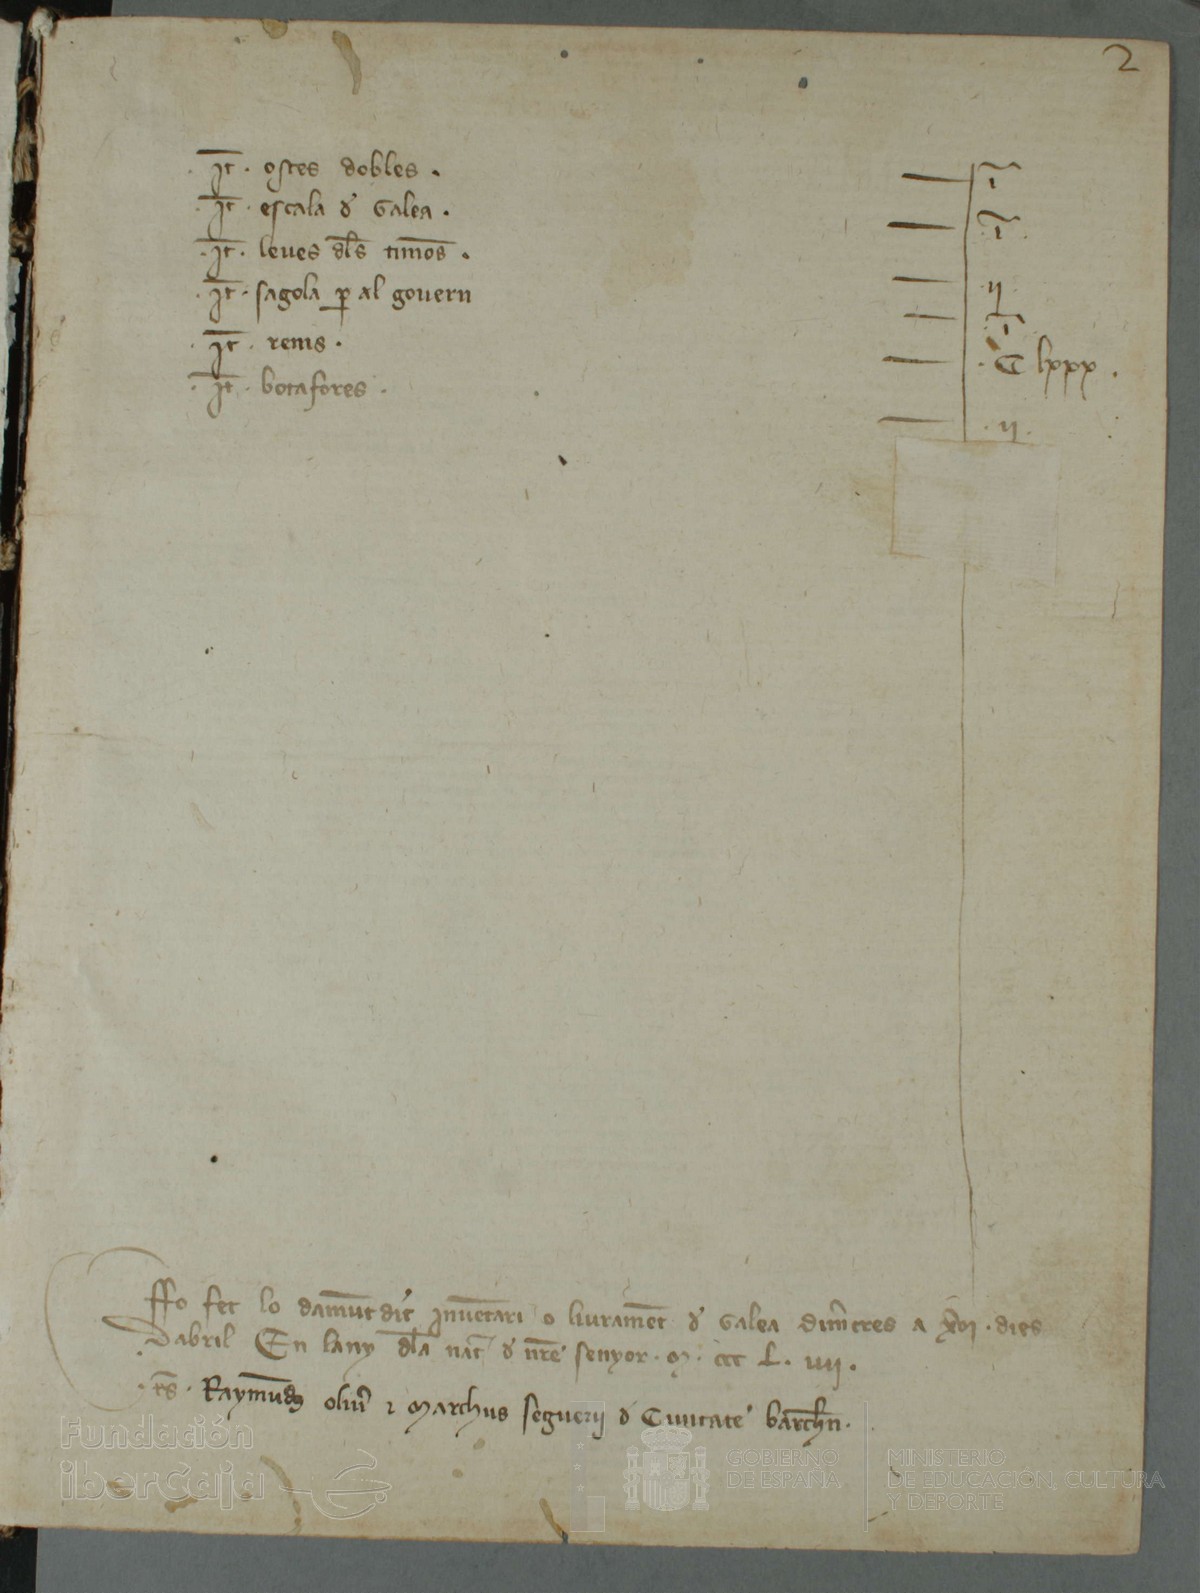 2
·Jt̄· ostes dobles · — ·ı̃·
·Jt̄· escala d' Galea · — ·ı̃·
·Jt̄· leues dl̄s timōs · — ·ıȷ·
·Jt̄· sagola ꝑ al gouern — ·ı̃·
·Jt̄· rems · — · C lxxx ·
·Jt̄· botafores · — · ıȷ ·
Ffo fet lo damūt dit Jnuētari o liuramēt d' Galea dim̄cres a xvı · dies
Dabril En lany dl̄a nat̄ d' nr̄e senyor · m · ccc L · ıııȷ ·
· t̄s · Raymūdꝰ oliu̾ ⁊ marchus seguerij d' Ciuitate barch̄n ·
Fundación
ibercaja
GOBIERNO
DE ESPAÑA
MINISTERIO
DE EDUCACIÓN, CULTURA
Y DEPORTE